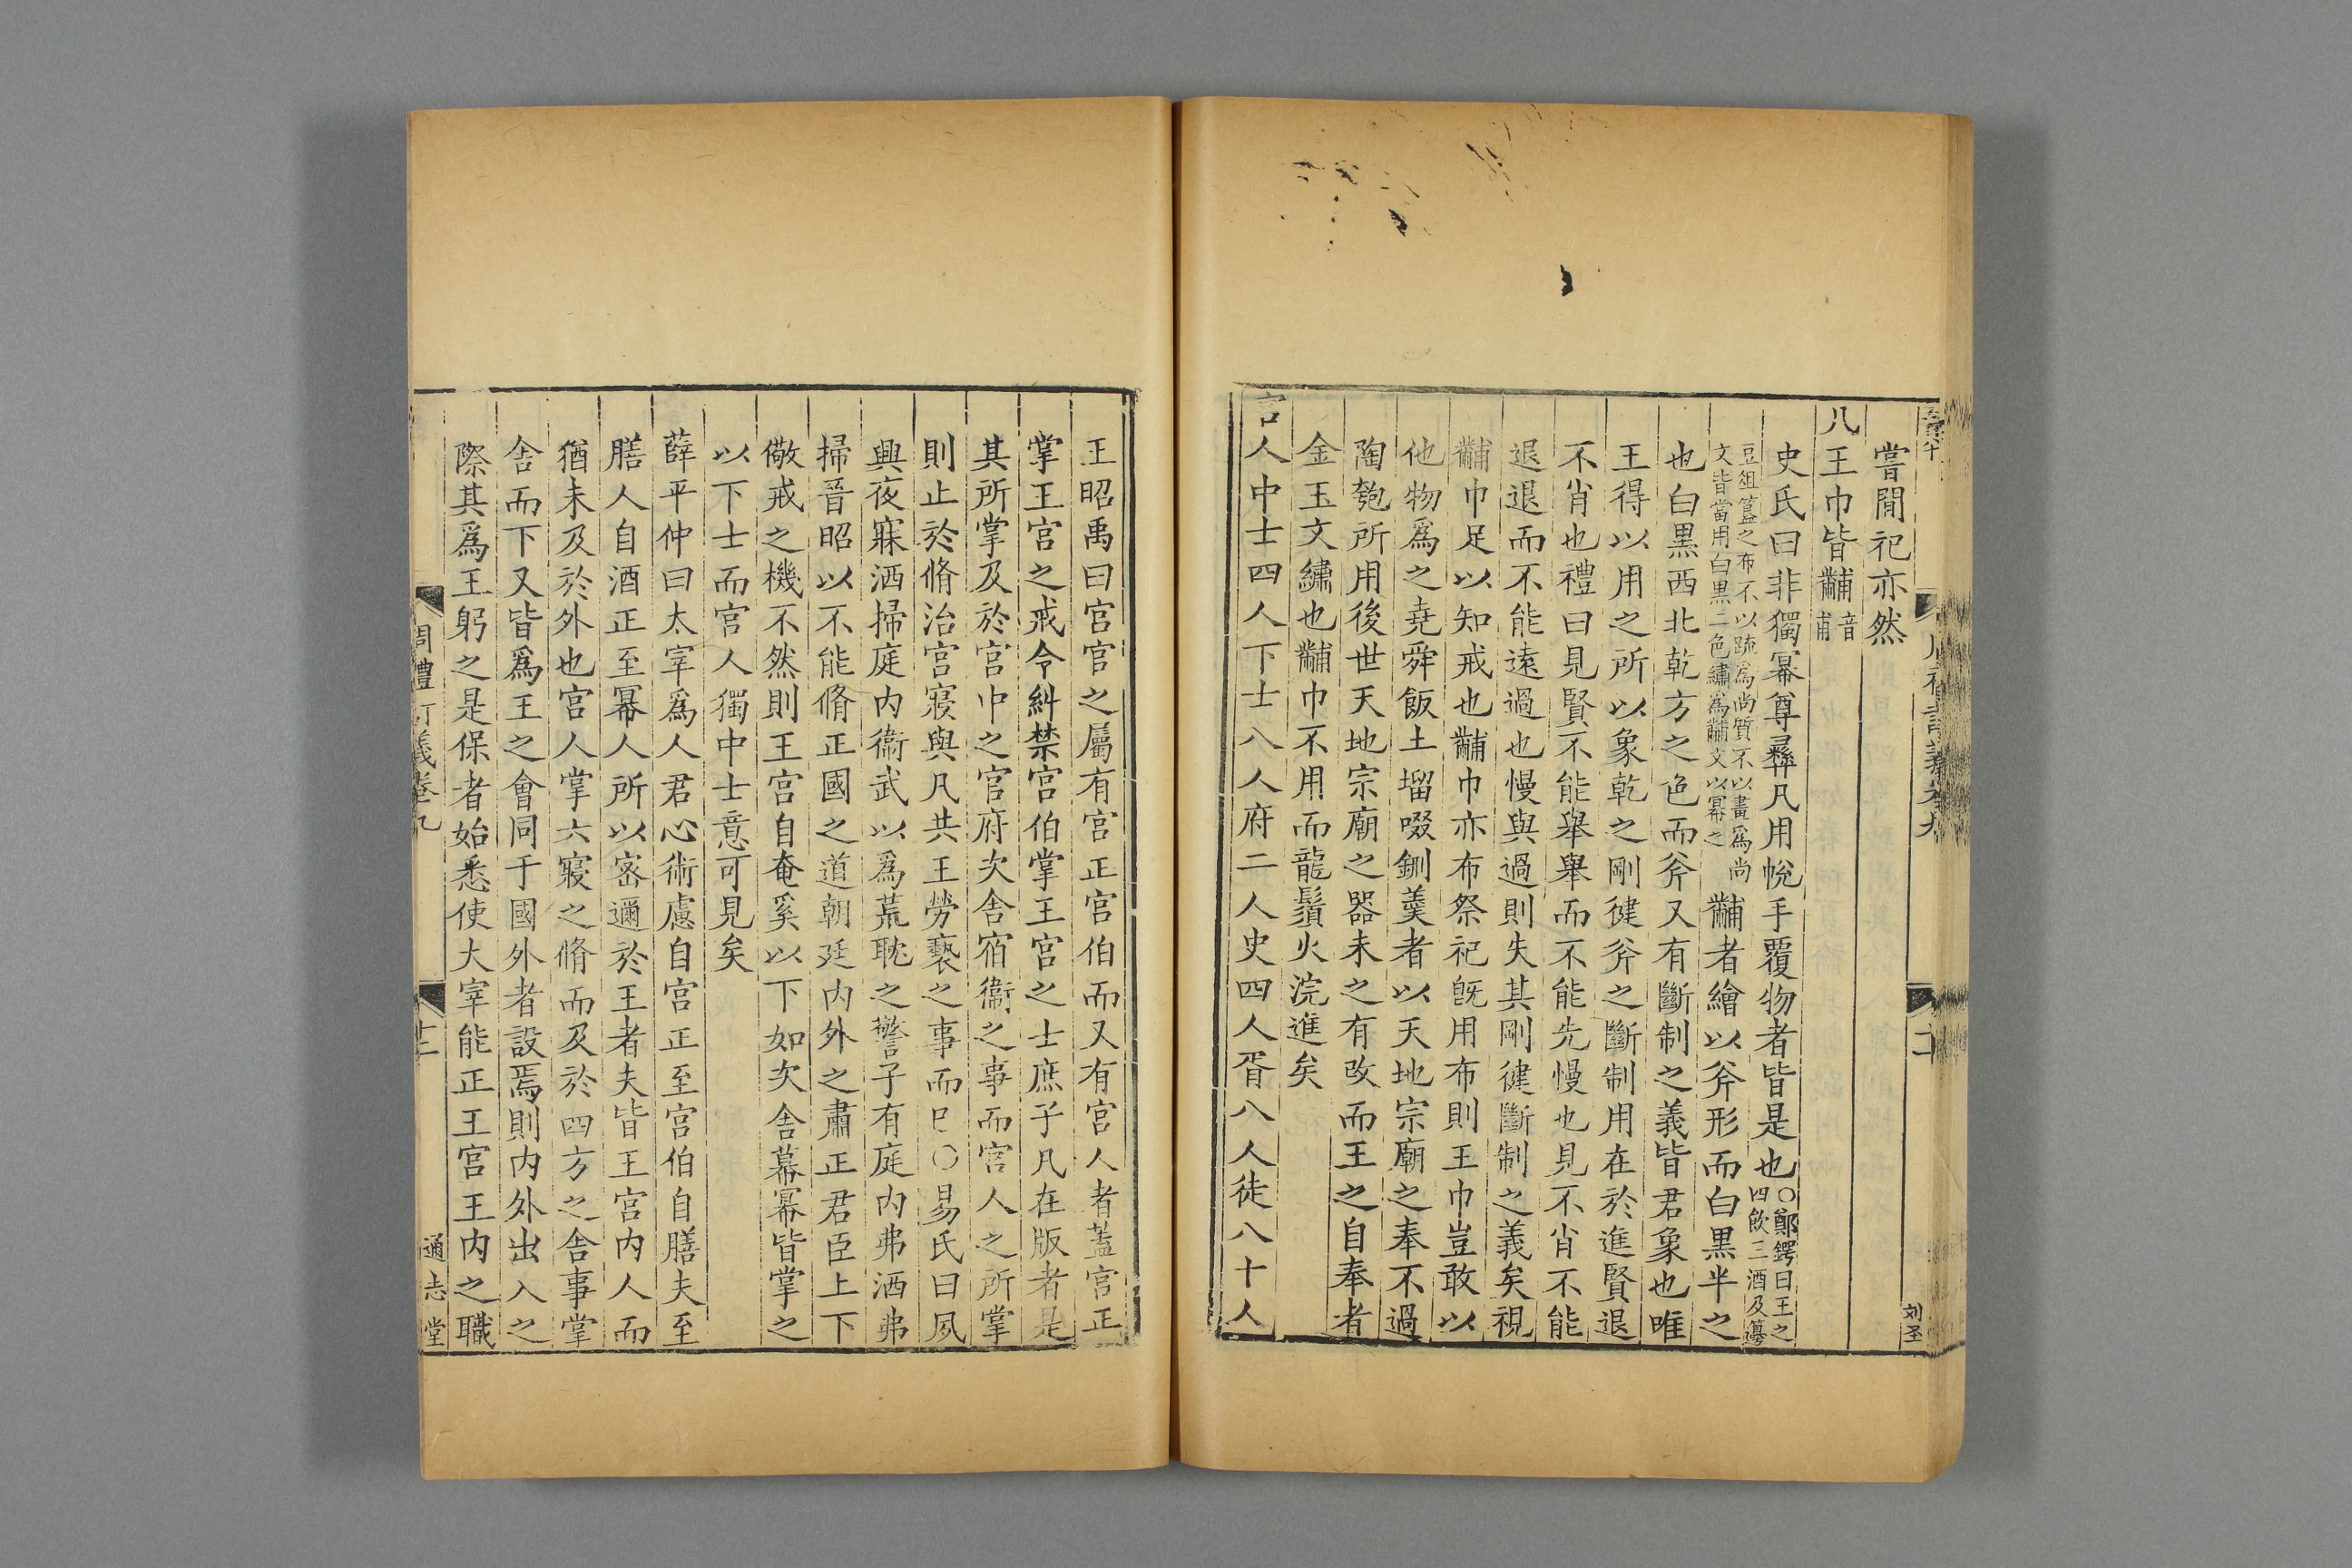 嘗閒祀亦然
八王巾皆黼音黼
史氏曰非獨冪尊彝凡用帨手覆物者皆是也〇鄭鍔曰王之四飲三酒及籩
豆俎簋之布不以疏爲尚質不以畫爲尚文皆當用白黒二色繡爲黼文以冪之黼者繪以斧形而白黒半之
也白黒西北乾方之色而斧又有斷制之義皆君象也唯
王得以用之所以象乾之剛健斧之斷制用在於進賢退
不肖也禮曰見賢不能舉舉而不能先慢也見不肖不能
退退而不能遠過也慢與過則失其剛健斷制之義矣視
黼巾足以知戒也黼巾亦布祭祀旣用布則王巾豈敢以
他物爲之堯舜飯土塯啜鉶羹者以天地宗廟之奉不過
陶匏所用後世天地宗廟之器未之有改而王之自奉者
金玉文繡也黼巾不用而龍鬚火浣進矣
宫人中士四人下士八人府二人史四人胥八人徒八十人
王昭禹曰宫官之屬有宫正宫伯而又有宫人者蓋宫正
掌王宫之戒令糾禁宫伯掌王宫之士庶子凡在版者是
其所掌及於宫中之官府次舍宿衞之事而宫人之所掌
則止於脩治宫寢與凡共王勞褻之事而已〇易氏曰夙
興夜寐洒掃庭内衞武以爲荒耽之警子有庭内弗洒弗
掃晉昭以不能脩正國之道朝廷内外之肅正君臣上下
儆戒之機不然則王宫自奄奚以下如次舍幕冪皆掌之
以下士而宫人獨中士意可見矣
薛平仲曰太宰爲人君心術慮自宫正至宫伯自膳夫至
膳人自酒正至冪人所以宻邇於王者夫皆王宫内人而
猶未及於外也宫人掌六寢之脩而及於四方之舍事掌
舍而下又皆爲王之會同于國外者設焉則内外出入之
際其爲王躬之是保者始悉使大宰能正王宫王内之職
周禮訂義卷九
十二
通志堂